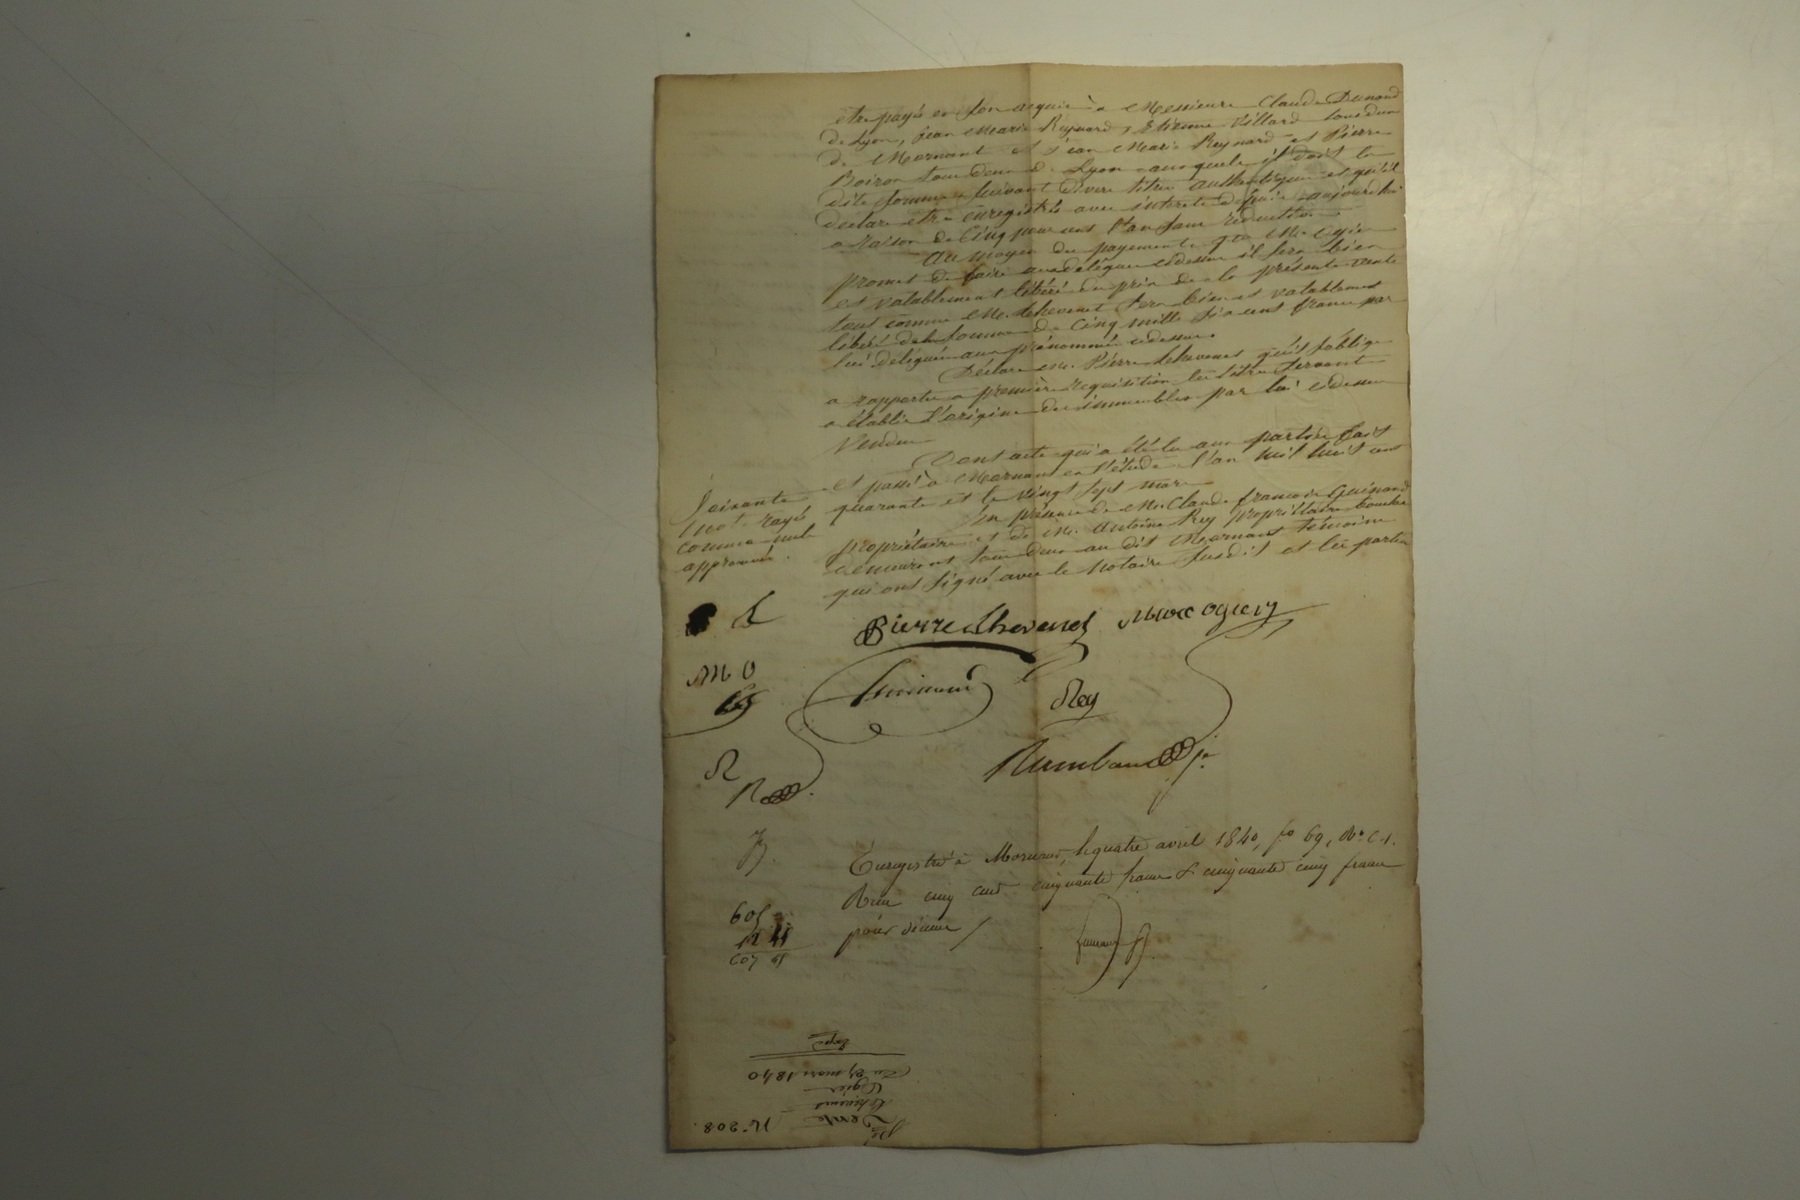 être payé en son acquit à Messieurs Claude Dumond
de Lyon, jean Marie Reynard, Etienne Villard tous deux
de Mornant et Jean Marie Reynard et Pierre
Boiron tous deux de Lyon auxquels il doit la
dite somme suivant divers titres authentiques et qu'il
declare être enregistrés avec intérêts depuis aujourd'hui
a raison de Cinq pour cent l'an sans réduction.
Au moyen du payement que Mr. Ogier
promet de faire aux délégués cidessus il sera bien
et valablement libéré du prix de la présente vente
tout comme Mr. Thevenet sera bien et valablement
libéré de la somme de Cinq mille six cent francs par
lui déléguée aux prénommés cidessus.
Déclare Mr. Pierre Thevenet qu'il s'oblige
a rapporter a première requisition les titres servant
a établir l'origine des immeubles par lui cidessus
Vendus
Dont acte qui a été lu aux parties fait
et passé à Mornant en l'étude l'an mil huit cent
quarante et le vingt sept mars
En présence de Mr. Claude françois Guinand
propriétaire et de Mr. Antoine Rey propriétaire
demeurant tous deux au dit Mornant témoins
qui ont signé avec le Notaire susdit et les parties
Soixante
mots rayés
comme nuls
approuvés.
Pierre Thevenet Marc ogier
M O
Guinand
Rey
R
Rambaud jne
R
Enregistré à Mornant, le quatre avril 1840, fo 69, Ro. C. 1.
Reçu cinq cent cinquante francs & cinquante cinq francs
pour dixième
605
Nº 208.
Vente
Thevenet
Ogier
Du 27 mars 1840